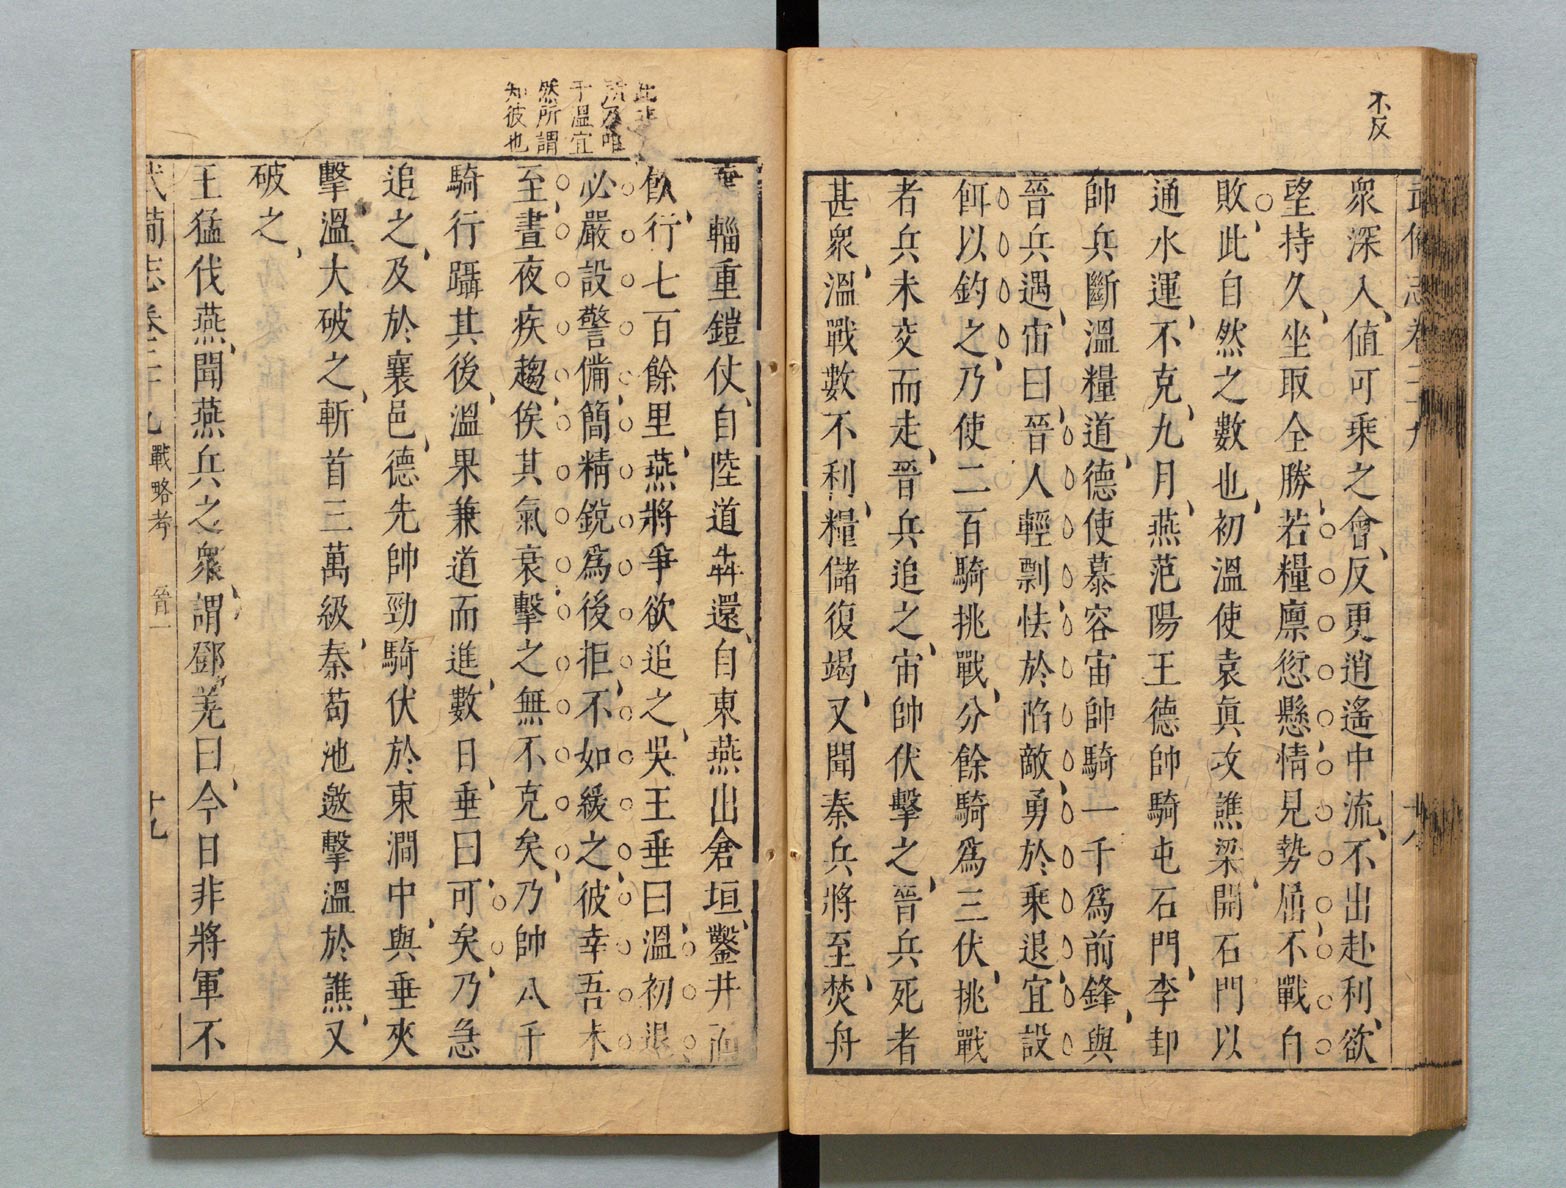 不反
武備志卷二十九
十八
衆深入值可乘之會反更逍遙中流不出赴利欲
望持久坐取全勝若糧廪愆懸情見勢屈不戰自
敗此自然之數也初溫使袁眞攻譙梁開石門以
通水運不克九月燕范陽王德帥騎屯石門李邽
帥兵斷溫糧道德使慕容宙帥騎一千爲前鋒與
晉兵遇宙曰晉人輕剽怯於陷敵勇於乘退宜設
餌以釣之乃使二百騎挑戰分餘騎爲三伏挑戰
者兵未交而走晉兵追之宙帥伏擊之晉兵死者
甚衆溫戰數不利糧儲復竭又聞秦兵將至焚舟
于溫宜
然所謂
知彼也
棄輜重鎧仗自陸道犇還自東燕出倉垣鑿井而
飲行七百餘里燕將爭欲追之吳王垂曰溫初退
必嚴設警備簡精銳爲後拒不如緩之彼幸吾未
至晝夜疾趨俟其氣衰擊之無不克矣乃帥八千
騎行躡其後溫果兼道而進數日垂曰可矣乃急
追之及於襄邑德先帥勁騎伏於東澗中與垂夾
擊溫大破之斬首三萬級秦苟池邀擊溫於譙又
破之
王猛伐燕聞燕兵之衆謂鄧羌曰今日非將軍不
武備志卷二十九 戰略考 晉一 十九